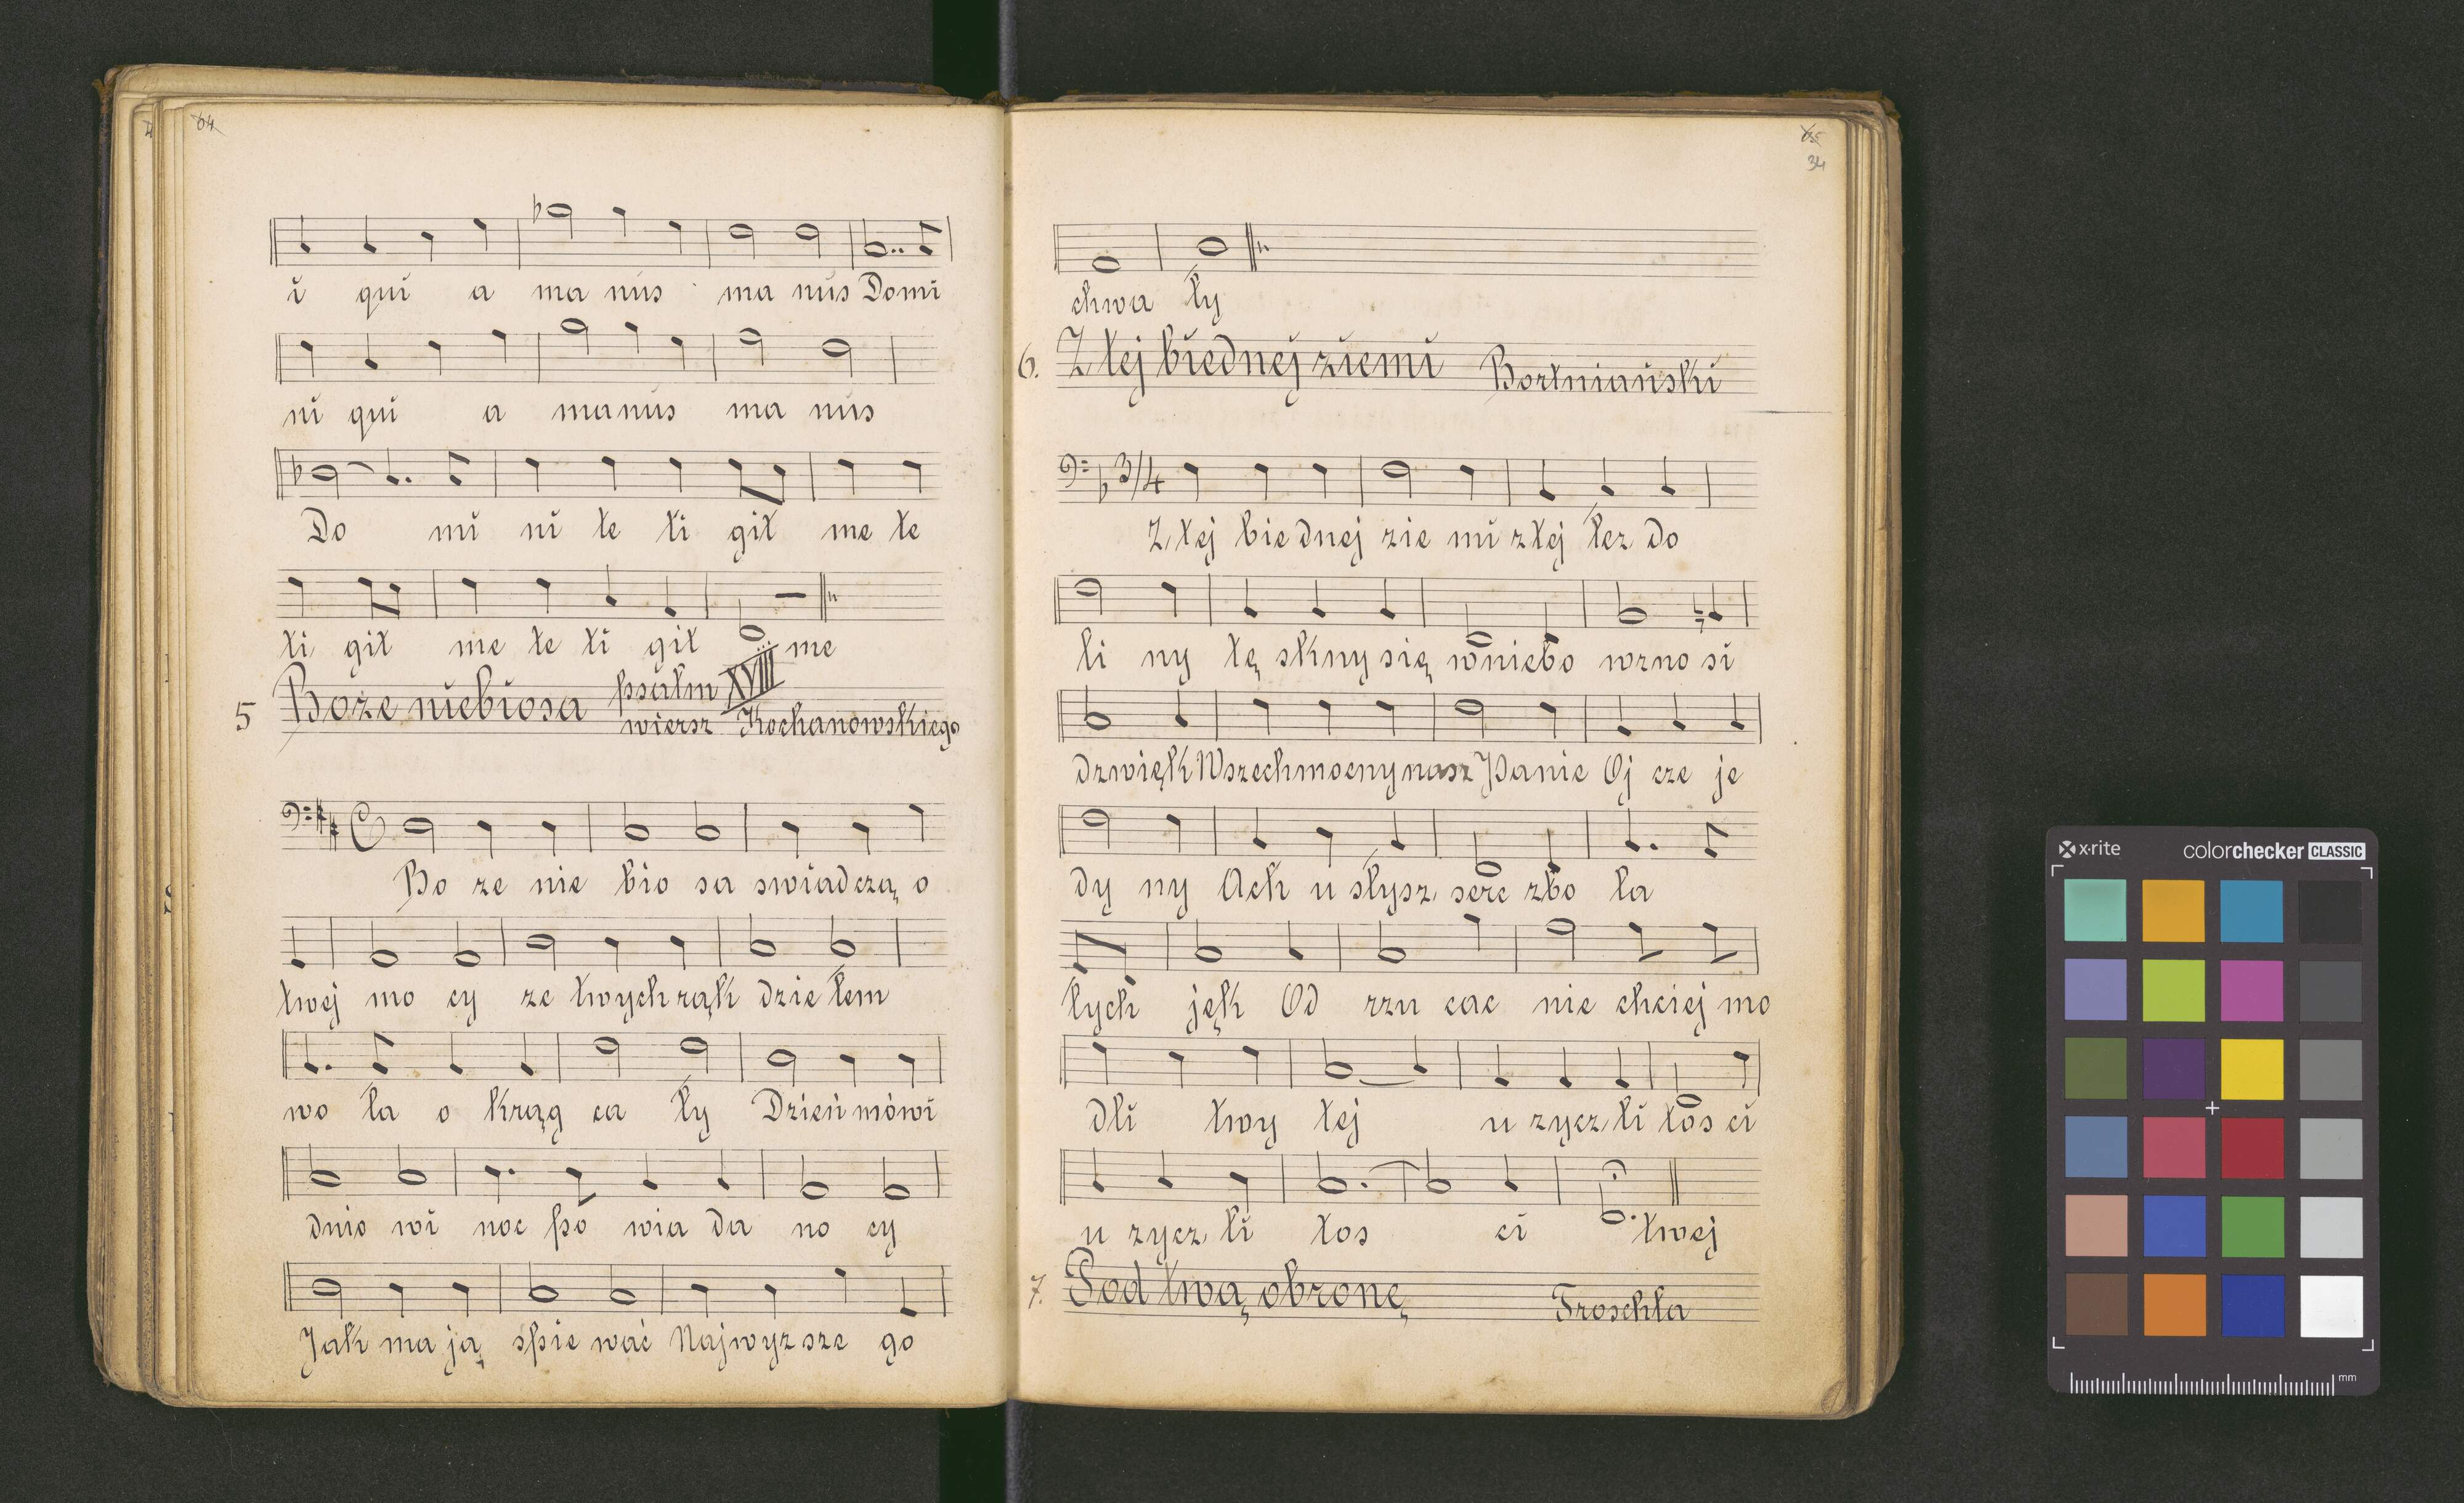 64
i qui a ma nus ma nus Domi
ni qui a manus ma nus
Do mi ni te ti git me te
ti git me te ti git me
5 Boże niebiosa psalm XVIII
wiersz Kochanowskiego
Bo ze nie bio sa swiadczą o
twej mo cy ze twych rąk dzie łem
wo ła o krąg ca ły Dzień mówi
dnio wi noc po wia da no cy
Jak ma ją spie wać Najwyz sze go
34
chwa ły
6. Z tej biednej ziemi Bortniański
3/4
Z tej bie dnej zie mi z tej łez do
li ny tę skny się w niebo wzno si
dzwięk Wszechmocny nasz Panie Oj cze je
dy ny Ach u słysz serc zbo la
łych jęk Od rzu cac nie chciej mo
dli twy tej u zycz li tos ci
u zycz li tos ci twej
7. Pod twą obronę Troschla
x·rite colorchecker CLASSIC
mm